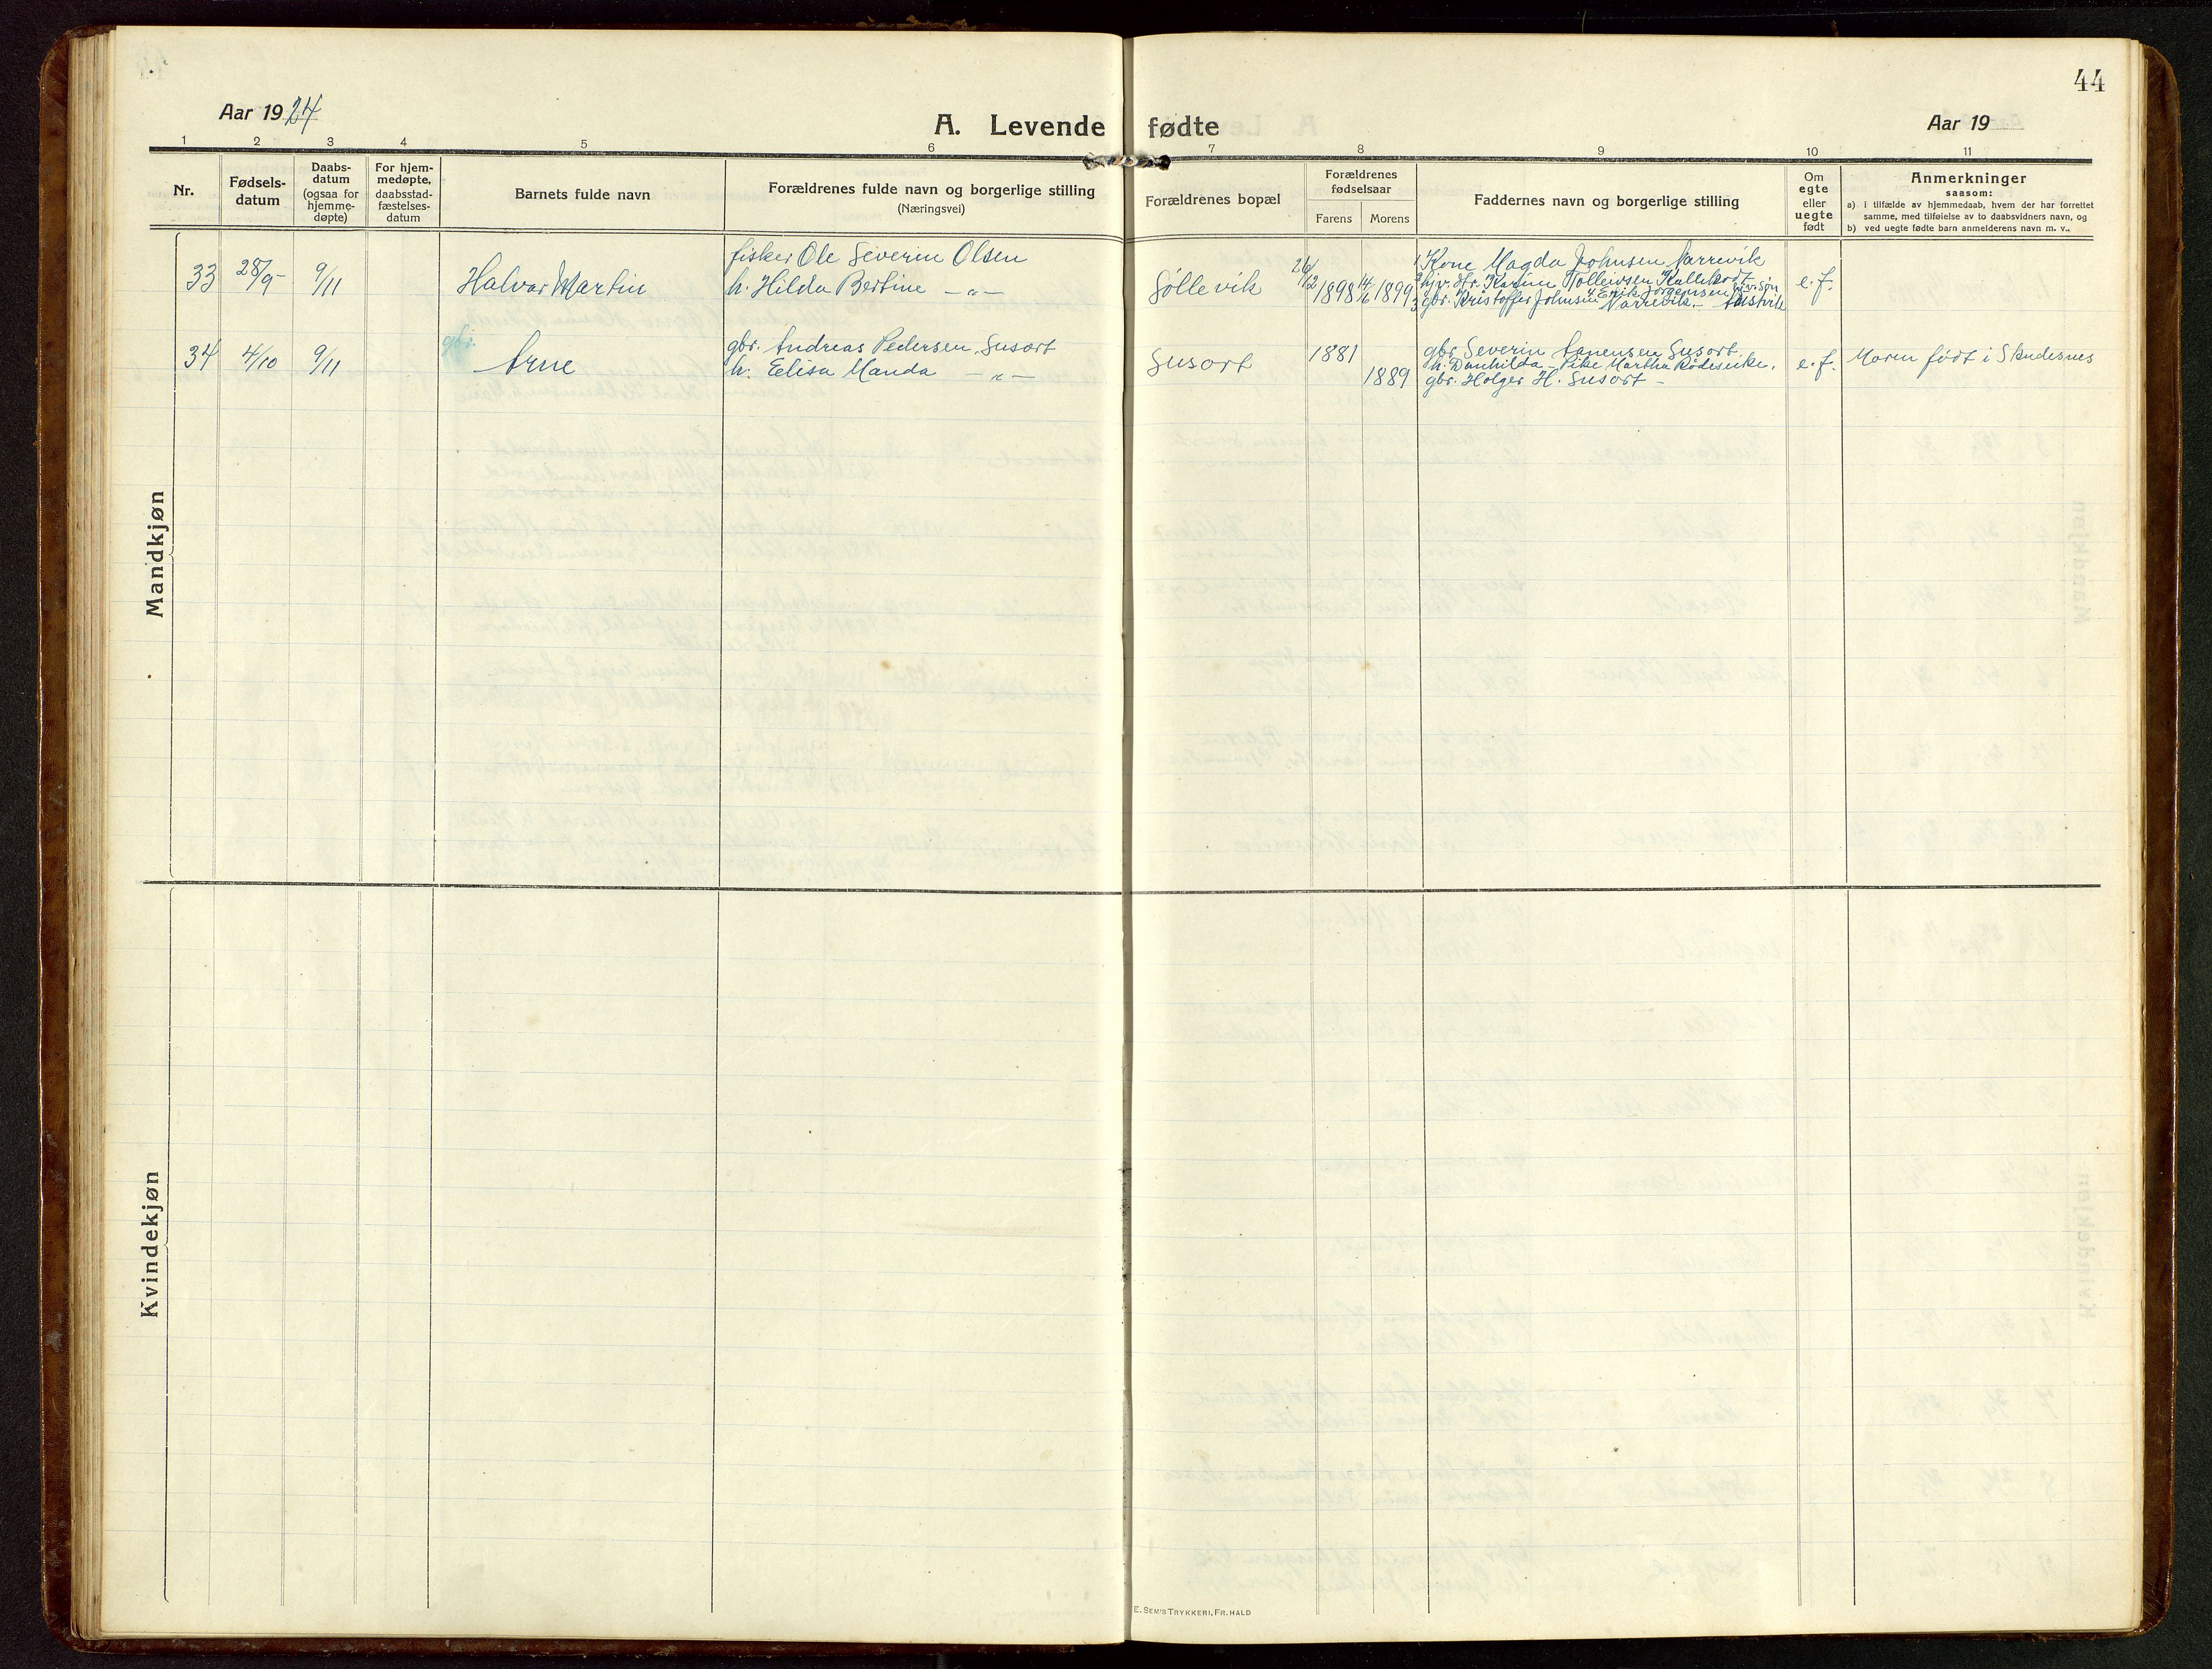 44
Aar 1924
A. Levende fødte
Aar 19
1 2 3 4 5 6 7 8 9 10 11
Nr.
Fødsels-
datum
Daabs-
datum
(ogsaa for
hjemme-
døpte)
For hjem-
medøpte,
daabsstad-
fæstelses-
datum
Barnets fulde navn
Forældrenes fulde navn og borgerlige stilling
(Næringsvei)
Forældrenes bopæl
Forældrenes
fødselsaar
Farens Morens
Faddernes navn og borgerlige stilling
Om
egte
eller
uegte
født
Anmerkninger
saasom:
a) i tilfælde av hjemmedaab, hvem der har forrettet
samme, med tilføielse av to daabsvidners navn, og
b) ved uegte fødte barn anmelderens navn m. v..
Mandkjøn
33 28/9- 9/11 Halvar Martin
fisker Ole Severin Olsen
h. Hilda Bertine —"—
Søllevik
26/12 1898 14/6 1899
1 Kone Magda Johnsen Varrevik
2 hjv. dtr. Karine Tolleivsen Kallekodt
3 gbr. Kristoffer Johnsen Varrevik.— 4 Erik Jørgensen
e. f.
34 4/10 9/11 Arne
gbr.
gbr. Andreas Pedersen, Susort
h. Elisa Manda —"—
Susort
1881
1889
gbr. Severin Susort.
h. — Pike Martha
gbr. Holger H. Susort —
e. f.
Moren født i Skudesnes
Kvindekjøn
E. SEM'S TRYKKERI, FR. HALD